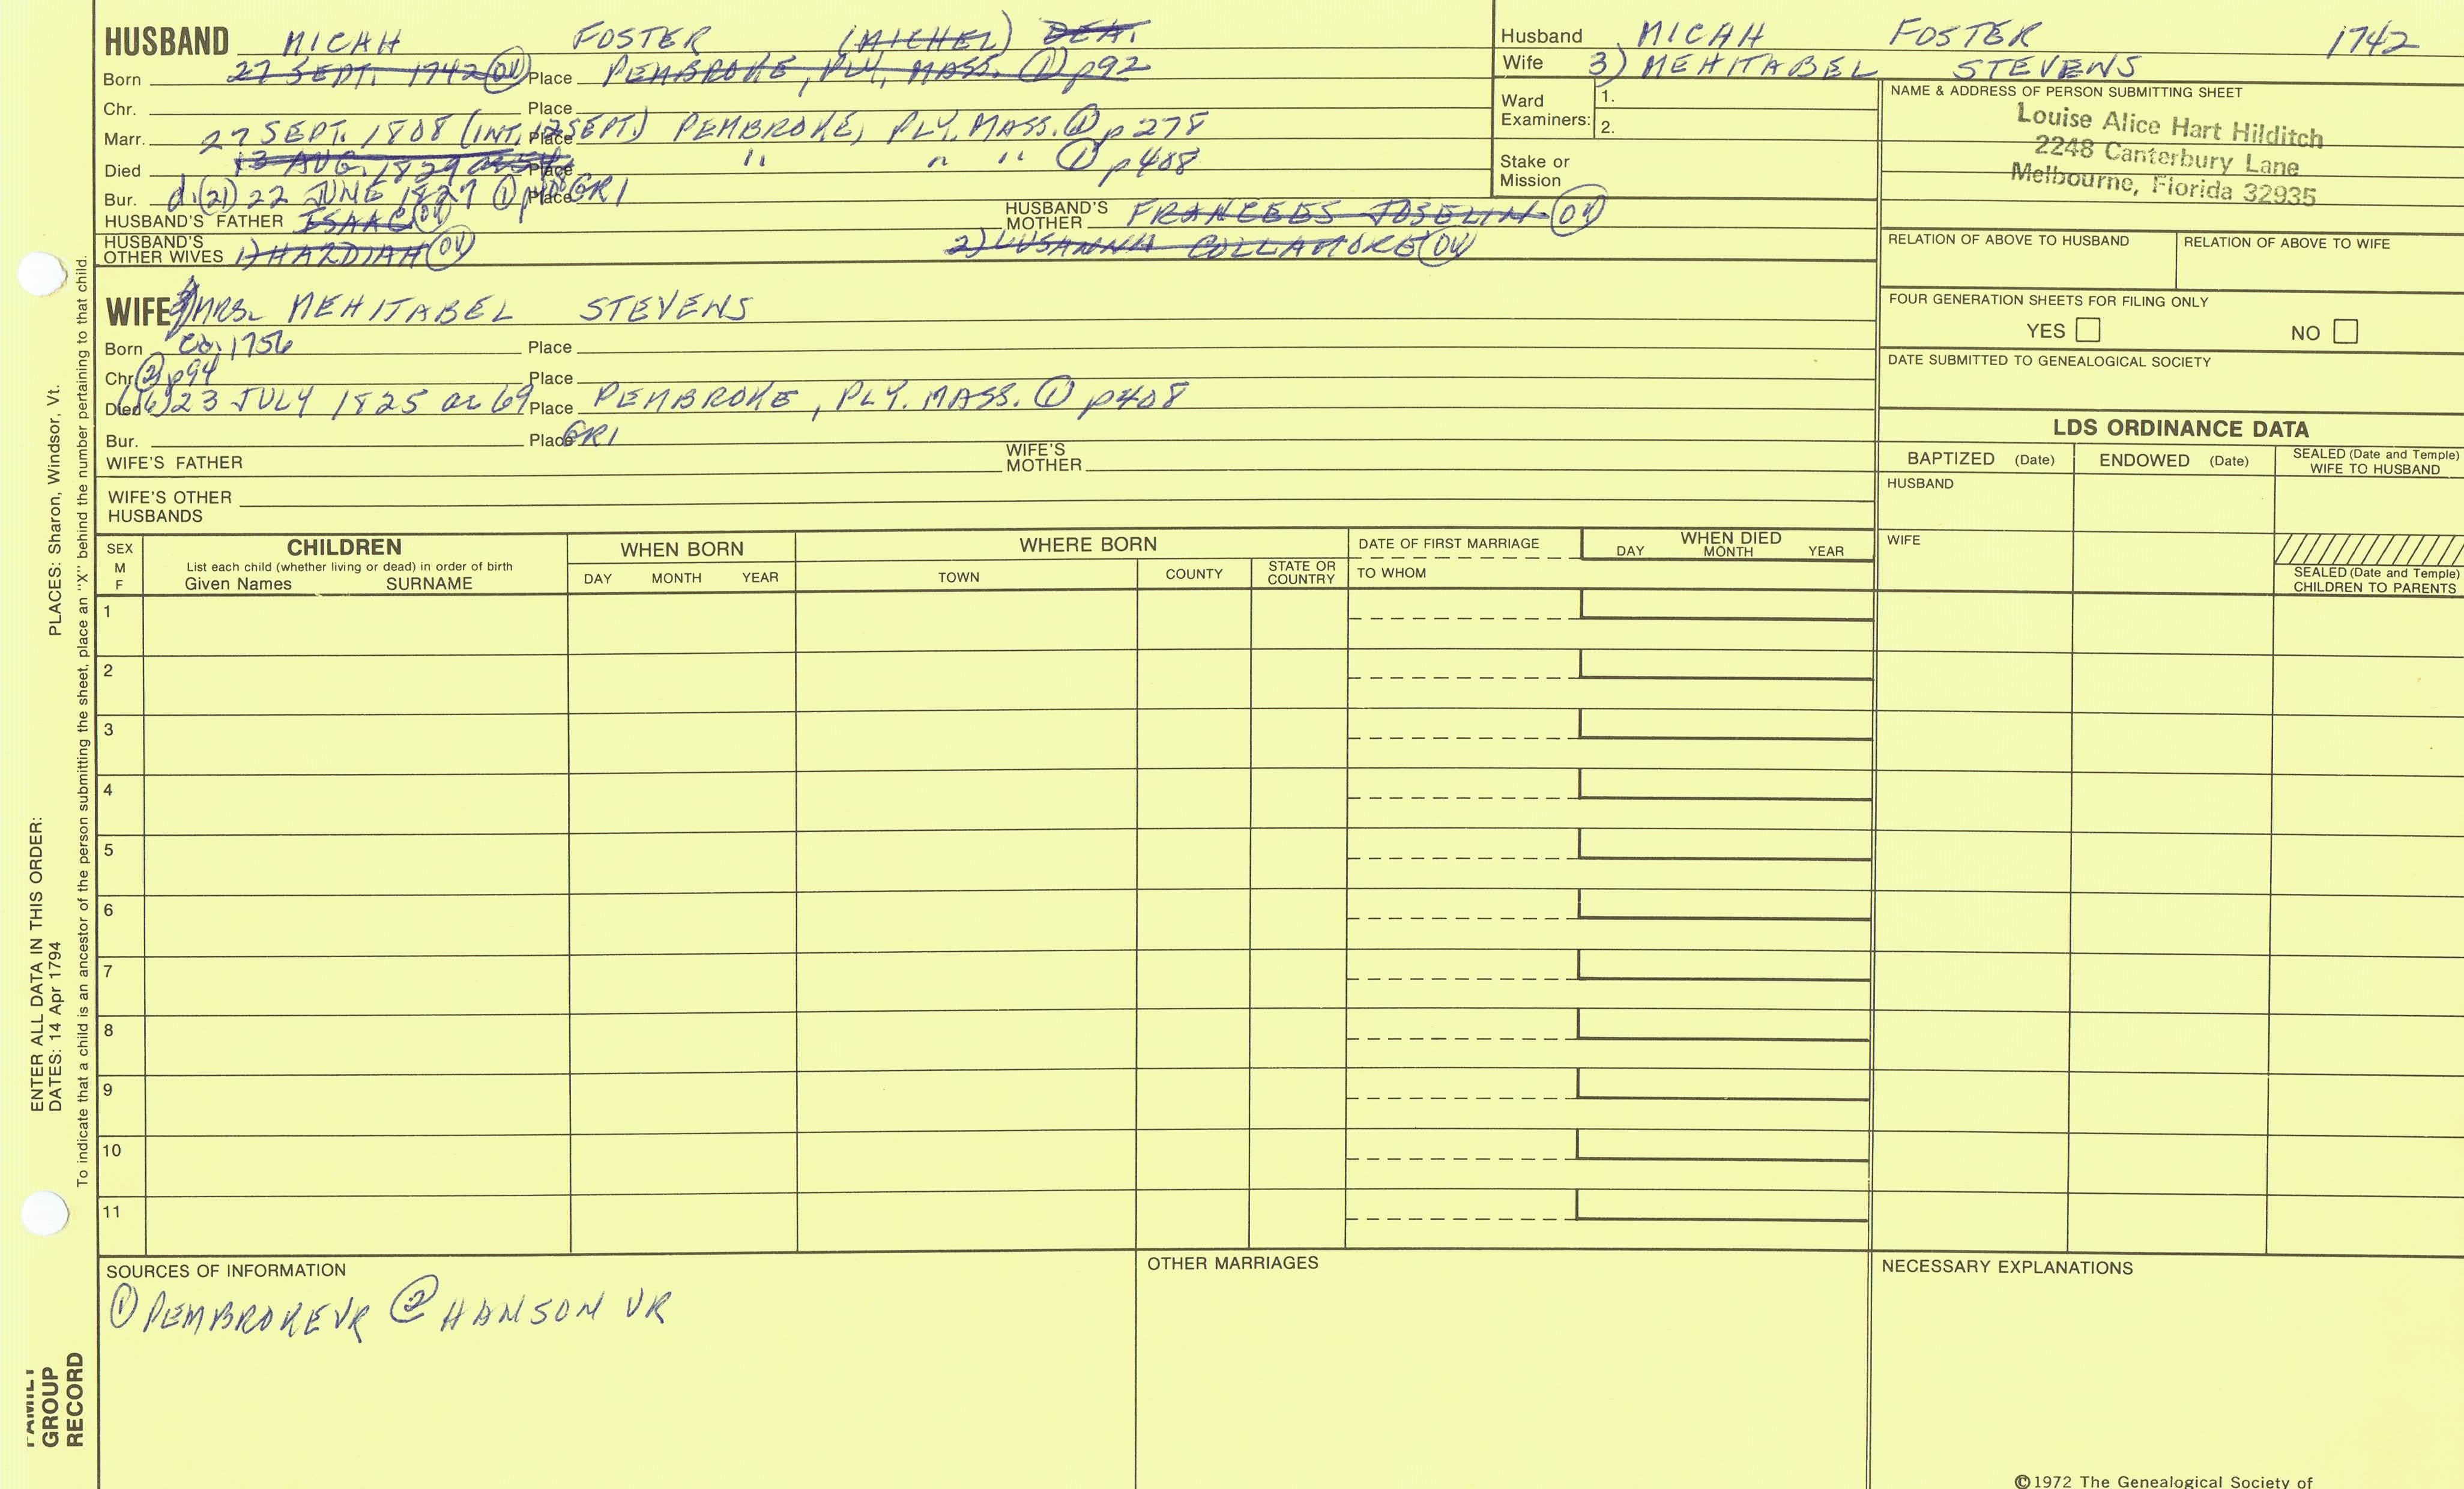 HUSBAND MICAH FOSTER (MICHEL) DEA.
Born 27 SEPT. 1742 (OV) Place PEMBROKE, PLY, MASS. ① p92
Chr. Place
Marr. 27 SEPT. 1808 (INT. 17 SEPT.) Place PEMBROKE, PLY. MASS. ① p278
Died 13 AUG. 1829 Place " " " ① p408
Bur. d. (21) 22 JUNE 1827 ① Place GR1
HUSBAND'S FATHER ISAAC (OV) HUSBAND'S MOTHER FRANCEES JOSELIN (OV)
HUSBAND'S OTHER WIVES 1) HARDIAH (OV) 2) LUSANNA COLLAMORE (OV)
WIFE 3) MRS. MEHITABEL STEVENS
Born ca. 1756 Place
Chr. ② p94 Place
Died (16) 23 JULY 1825 ae 69 Place PEMBROKE, PLY. MASS. ① p408
Bur. Place GR1
WIFE'S FATHER WIFE'S MOTHER
WIFE'S OTHER HUSBANDS
Husband MICAH FOSTER 1742
Wife 3) MEHITABEL STEVENS
Ward Examiners: 1.
2.
Stake or Mission
NAME & ADDRESS OF PERSON SUBMITTING SHEET
Louise Alice Hart Hilditch
2248 Canterbury Lane
Melbourne, Florida 32935
RELATION OF ABOVE TO HUSBAND RELATION OF ABOVE TO WIFE
FOUR GENERATION SHEETS FOR FILING ONLY
YES NO
DATE SUBMITTED TO GENEALOGICAL SOCIETY
LDS ORDINANCE DATA
BAPTIZED (Date) ENDOWED (Date) SEALED (Date and Temple) WIFE TO HUSBAND
HUSBAND
WIFE
SEALED (Date and Temple) CHILDREN TO PARENTS
SEX M F
CHILDREN
List each child (whether living or dead) in order of birth
Given Names SURNAME
WHEN BORN
DAY MONTH YEAR
WHERE BORN
TOWN COUNTY STATE OR COUNTRY
DATE OF FIRST MARRIAGE
TO WHOM
WHEN DIED
DAY MONTH YEAR
1
2
3
4
5
6
7
8
9
10
11
SOURCES OF INFORMATION
① PEMBROKE VR ② HANSON VR
OTHER MARRIAGES
NECESSARY EXPLANATIONS
©1972 The Genealogical Society of
ENTER ALL DATA IN THIS ORDER:
DATES: 14 Apr 1794 PLACES: Sharon, Windsor, Vt.
To indicate that a child is an ancestor of the person submitting the sheet, place an "X" behind the number pertaining to that child.
FAMILY
GROUP
RECORD